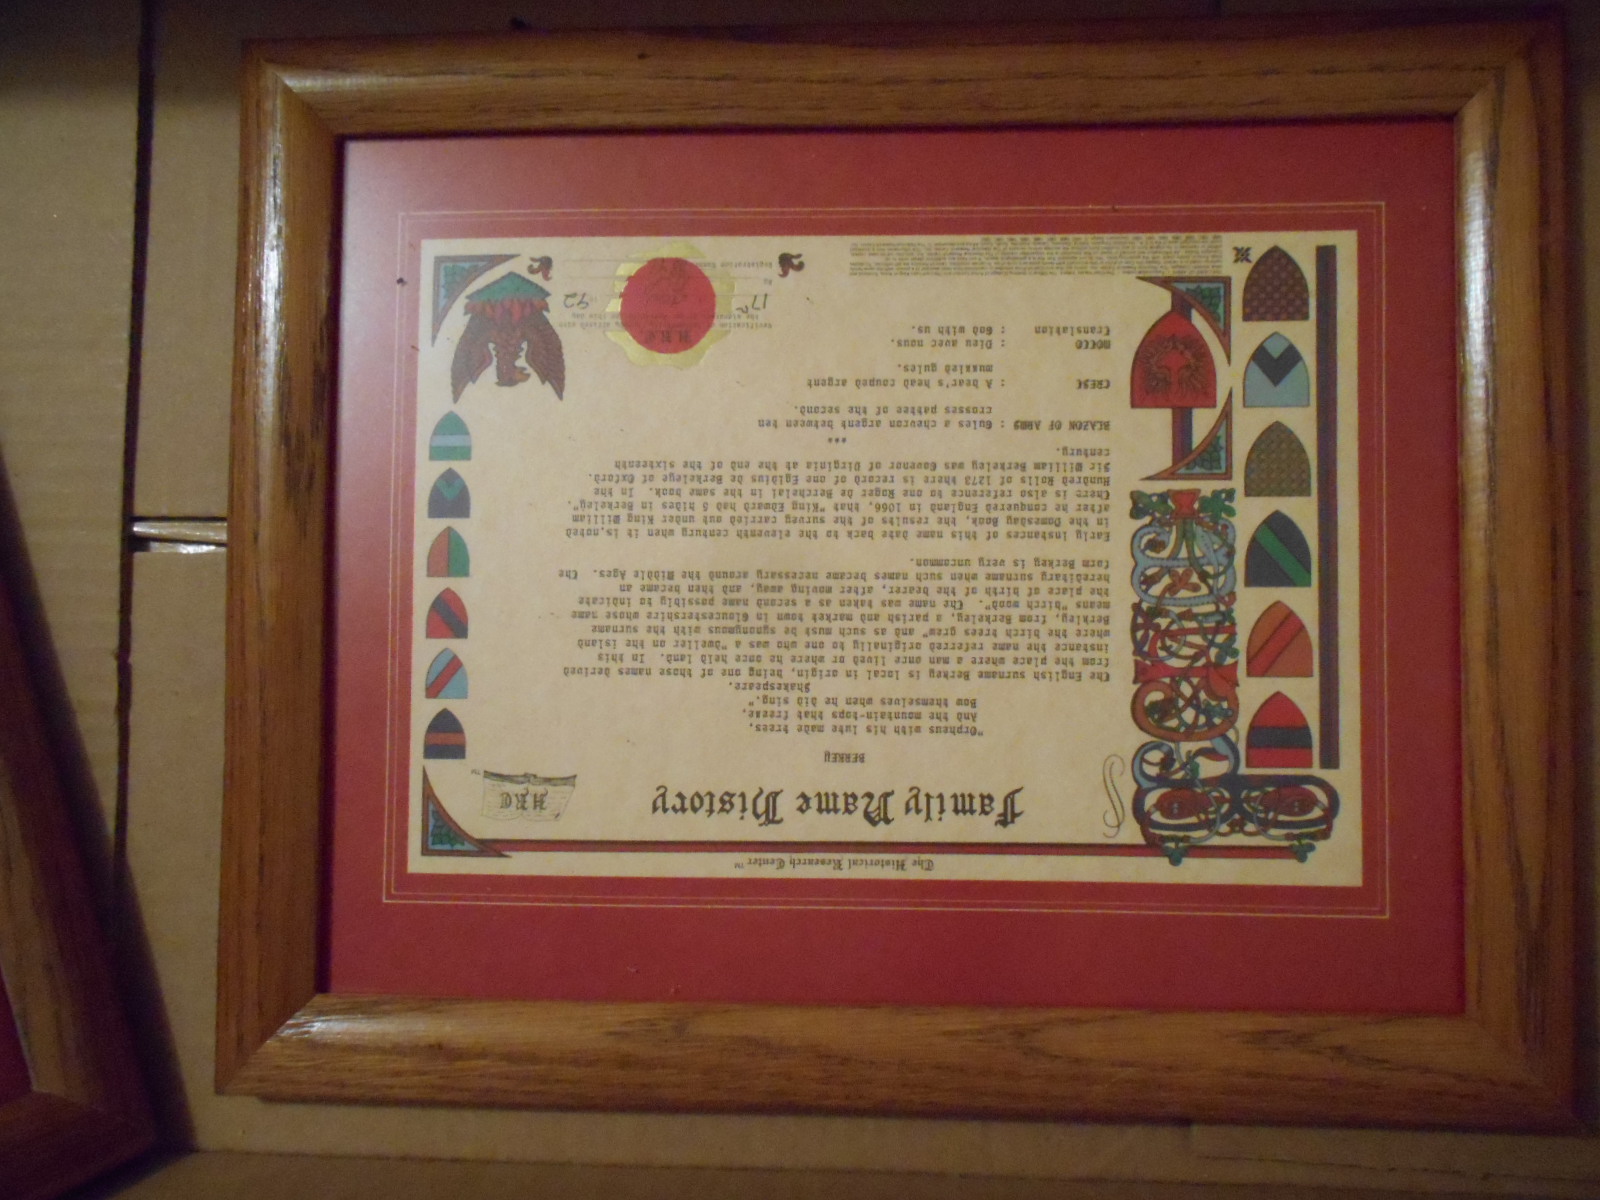 The Historical Research Center™
Family Name History
HRC
TM
BERKEY
"Orpheus with his lute made trees,
And the mountain-tops that freeze,
Bow themselves when he did sing."
Shakespeare.
The English surname Berkey is local in origin, being one of those names derived
from the place where a man once lived or where he once held land. In this
instance the name referred originally to one who was a "dweller on the island
where the birch trees grew" and as such must be synonymous with the surname
Berkley, from Berkeley, a parish and market town in Gloucestershire whose name
means "birch wood". The name was taken as a second name possibly to indicate
the place of birth of the bearer, after moving away, and then became an
hereditary surname when such names became necessary around the Middle Ages. The
form Berkey is very uncommon.
Early instances of this name date back to the eleventh century when it is noted
in the Domesday Book, the results of the survey carried out under King William
after he conquered England in 1066, that "King Edward had 5 hides in Berkeley".
There is also reference to one Roger de Berchelai in the same book. In the
Hundred Rolls of 1273 there is record of one Egidius de Berkelege of Oxford.
Sir William Berkeley was Govenor of Virginia at the end of the sixteenth
century.
***
BLAZON OF ARMS : Gules a chevron argent between ten
crosses pattee of the second.
CREST : A bear's head couped argent
muzzled gules.
MOTTO : Dieu avec nous.
Translation : God with us.
HRC
Verification
the signature
this day
17th
92
Registration